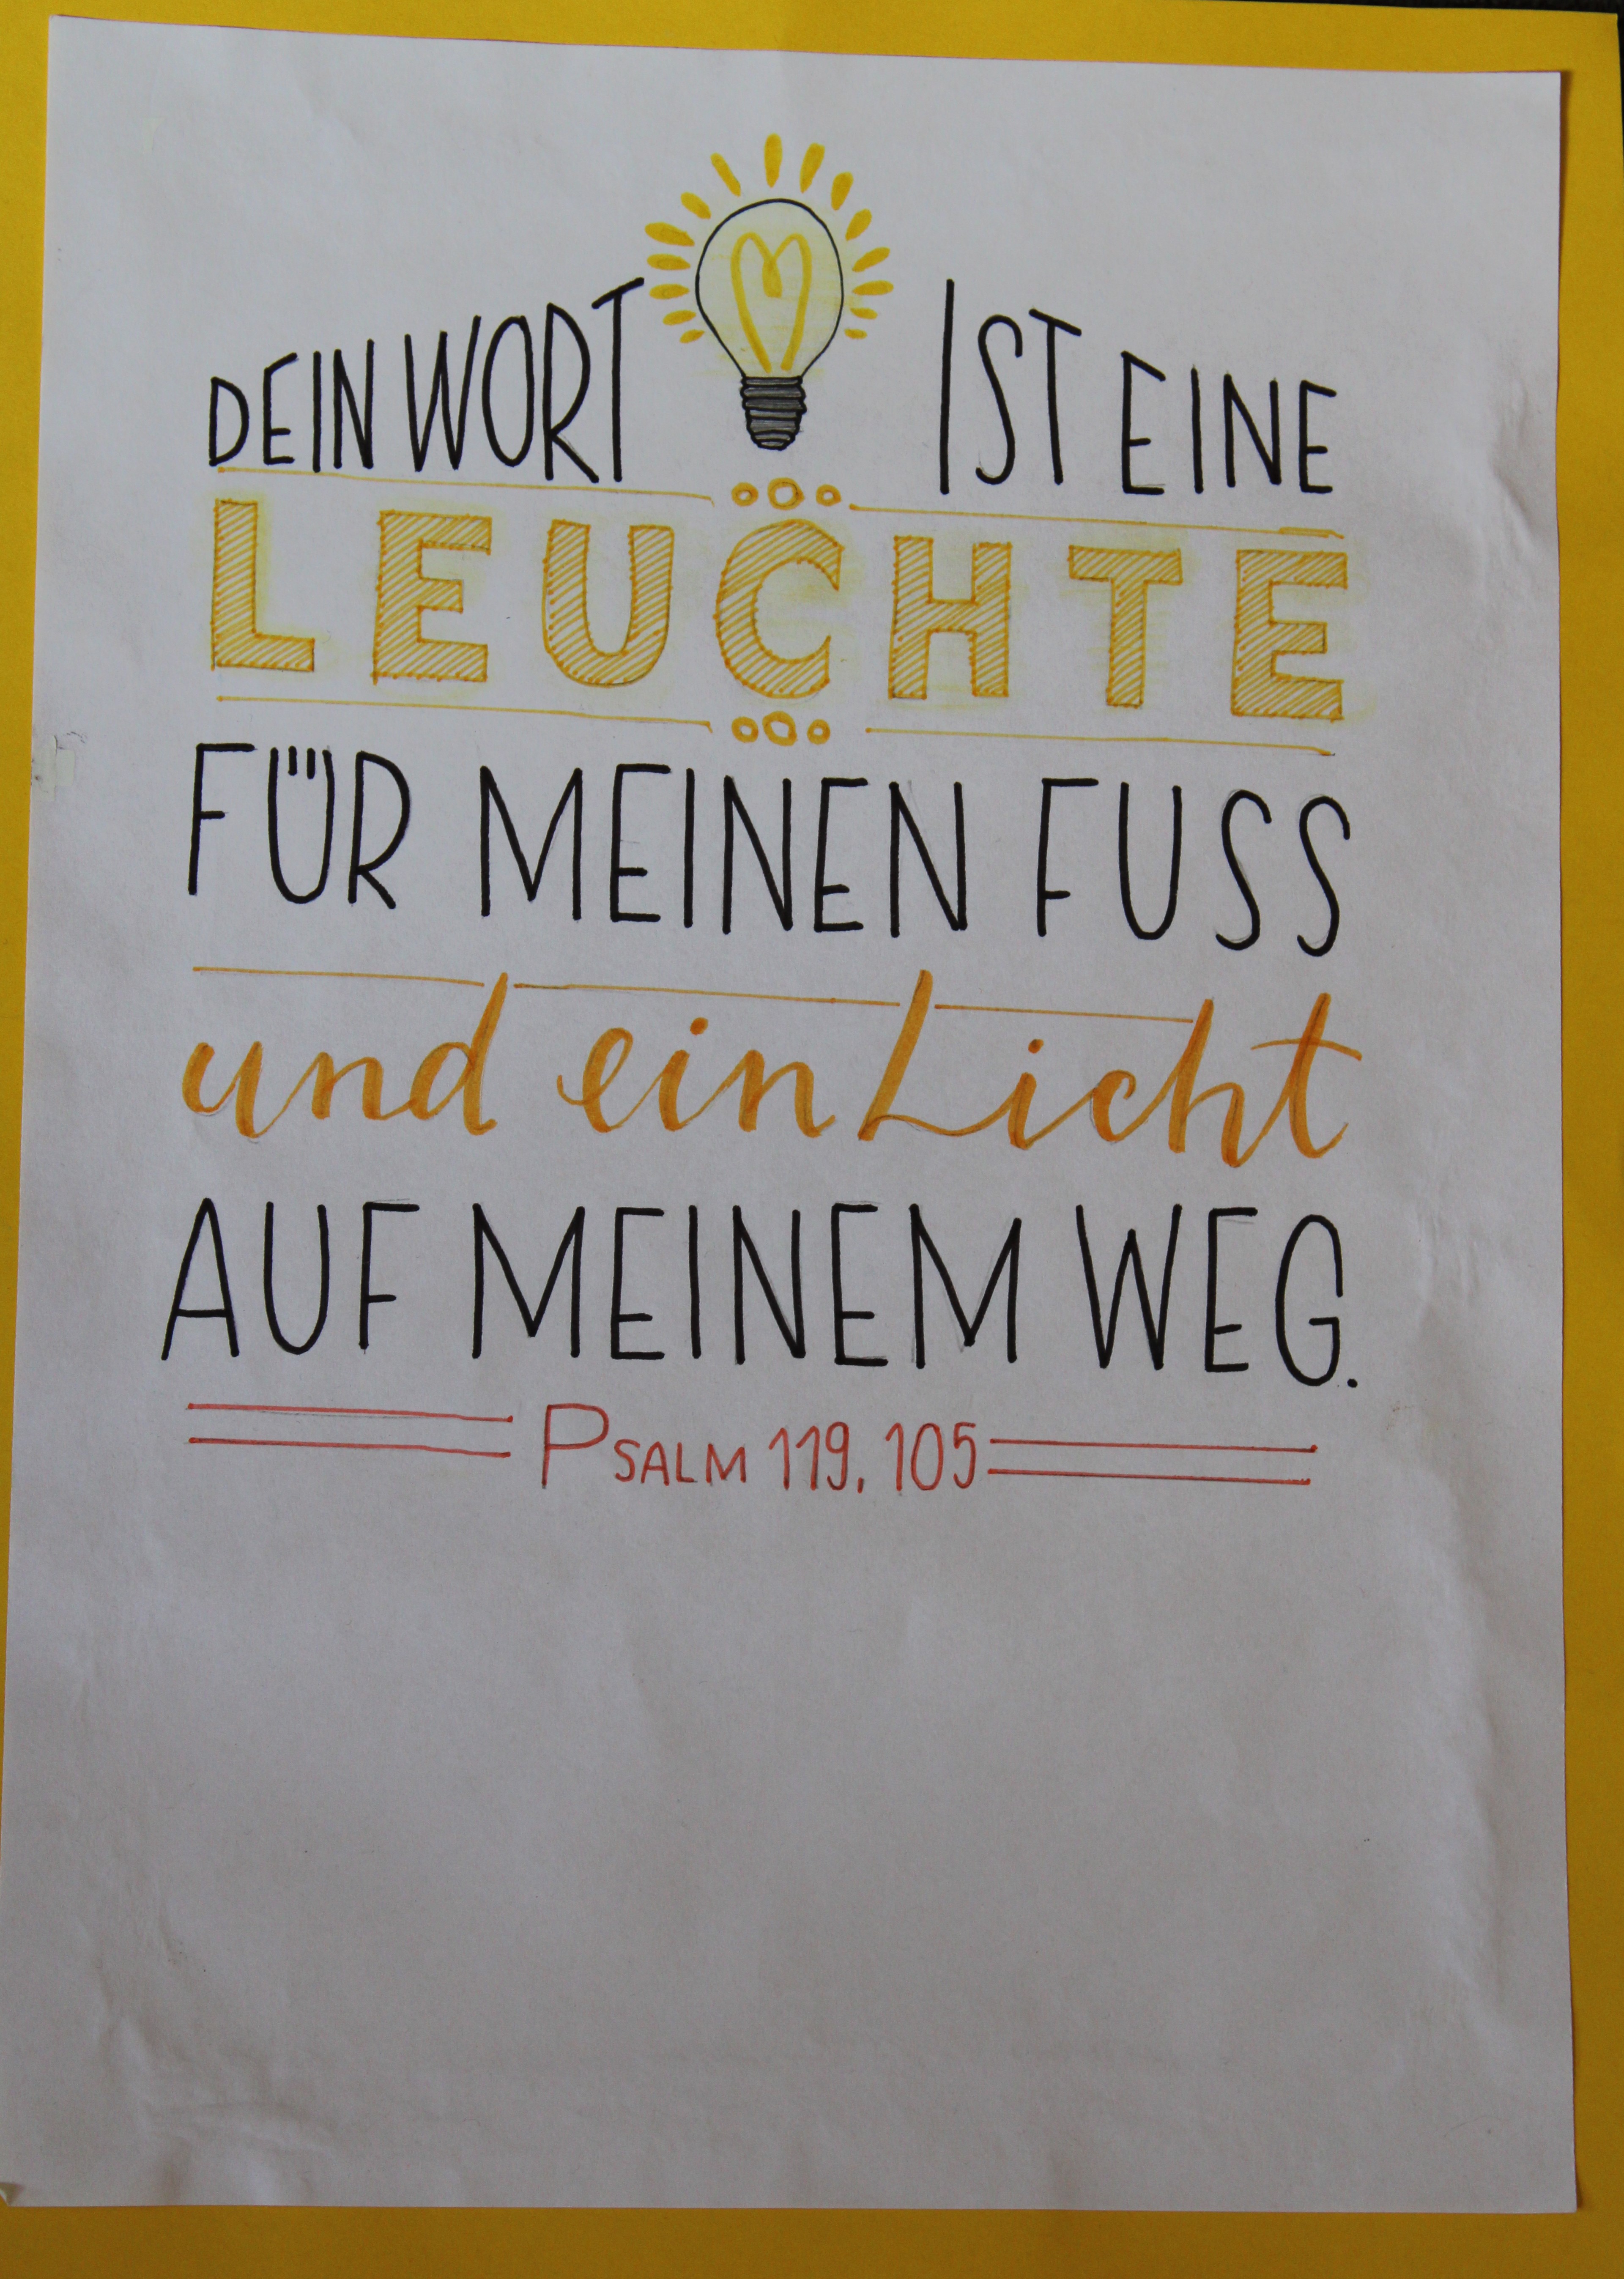 DEIN WORT IST EINE
LEUCHTE
FÜR MEINEN FUSS
und ein Licht
AUF MEINEM WEG.
PSALM 119, 105